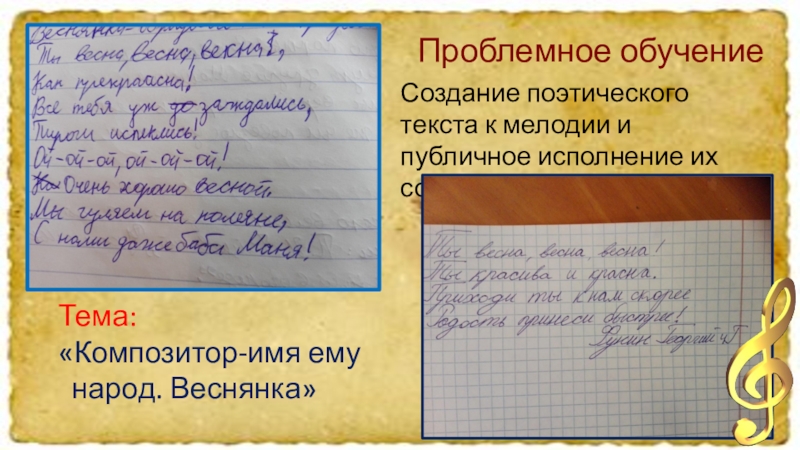 Веснянка-
Ты весна, весна, весна!,
Как прекраасна!
Все тебя уж до заждались,
Пироги испеклись!
Ой-ой-ой, ой-ой-ой!
Очень хорошо весной.
Мы гуляем на поляне,
С нами даже баба Маня!
Проблемное обучение
Создание поэтического
текста к мелодии и
публичное исполнение их
Ты весна, весна, весна!
Ты красива и красна.
Приходи ты к нам скорее
Радость принеси быстрее!
Георгий 4Г
Тема:
«Композитор-имя ему
народ. Веснянка»